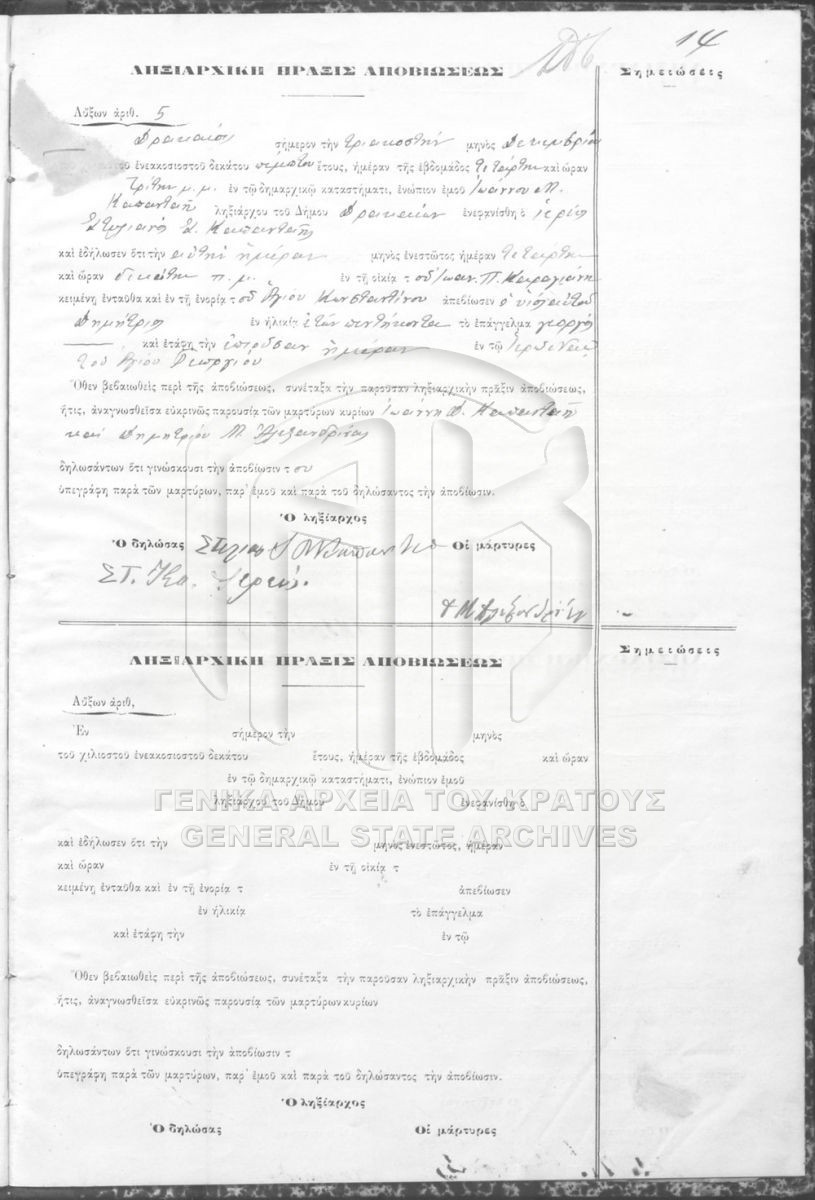 14
ΛΗΞΙΑΡΧΙΚΗ ΠΡΑΞΙΣ ΑΠΟΒΙΩΣΕΩΣ
Σημειώσεις
Αὔξων ἀριθ. 5
σήμερον τὴν τριακοστὴν μηνὸς Δεκεμβρίου
ἐνεακοσιοστοῦ δεκάτου πέμπτου ἔτους, ἡμέραν τῆς ἑβδομάδος Τετάρτην καὶ ὥραν
τρίτην μ.μ. ἐν τῷ δημαρχικῷ καταστήματι, ἐνώπιον ἐμοῦ Ἰωάννου Μ.
Καπανταῆ ληξιάρχου τοῦ Δήμου Δρακαίων ἐνεφανίσθη ὁ ἱερεὺς
Στυλιανὸς Δ. Καπανταῆς
καὶ ἐδήλωσεν ὅτι τὴν αὐτὴν ἡμέραν μηνὸς ἐνεστῶτος ἡμέραν Τετάρτην
καὶ ὥραν δεκάτην π.μ. ἐν τῇ οἰκίᾳ τοῦ Ἰωαν. Π. Καραγιάννη
κειμένῃ ἐνταῦθα καὶ ἐν τῇ ἐνορίᾳ τοῦ Ἁγίου Κωνσταντίνου ἀπεβίωσεν ὁ υἱὸς αὐτοῦ
Δημήτριος ἐν ἡλικίᾳ ἐτῶν πεντήκοντα τὸ ἐπάγγελμα γεωργὸς
καὶ ἐτάφη τὴν ἐπιοῦσαν ἡμέραν ἐν τῷ
τοῦ Ἁγίου Γεωργίου
Ὅθεν βεβαιωθεὶς περὶ τῆς ἀποβιώσεως, συνέταξα τὴν παροῦσαν ληξιαρχικὴν πρᾶξιν ἀποβιώσεως,
ἥτις, ἀναγνωσθεῖσα εὐκρινῶς παρουσίᾳ τῶν μαρτύρων κυρίων Ἰωάννη Δ. Καπανταῆ
καὶ Δημητρίου Μ. Ἀλεξανδρῆ
δηλωσάντων ὅτι γινώσκουσι τὴν ἀποβίωσιν του
ὑπεγράφη παρὰ τῶν μαρτύρων, παρ' ἐμοῦ καὶ παρὰ τοῦ δηλώσαντος τὴν ἀποβίωσιν.
Ὁ ληξίαρχος
Ὁ δηλώσας Οἱ μάρτυρες
ΛΗΞΙΑΡΧΙΚΗ ΠΡΑΞΙΣ ΑΠΟΒΙΩΣΕΩΣ
Σημειώσεις
Αὔξων ἀριθ.
Ἐν σήμερον τὴν μηνὸς
τοῦ χιλιοστοῦ ἐνεακοσιοστοῦ δεκάτου ἔτους, ἡμέραν τῆς ἑβδομάδος καὶ ὥραν
ἐν τῷ δημαρχικῷ καταστήματι, ἐνώπιον ἐμοῦ
ληξιάρχου τοῦ Δήμου ἐνεφανίσθη ὁ
ΓΕΝΙΚΑ ΑΡΧΕΙΑ ΤΟΥ ΚΡΑΤΟΥΣ
GENERAL STATE ARCHIVES
καὶ ἐδήλωσεν ὅτι τὴν μηνὸς ἐνεστῶτος, ἡμέραν
καὶ ὥραν ἐν τῇ οἰκίᾳ τ
κειμένῃ ἐνταῦθα καὶ ἐν τῇ ἐνορίᾳ τ ἀπεβίωσεν
ἐν ἡλικίᾳ τὸ ἐπάγγελμα
καὶ ἐτάφη τὴν ἐν τῷ
Ὅθεν βεβαιωθεὶς περὶ τῆς ἀποβιώσεως, συνέταξα τὴν παροῦσαν ληξιαρχικὴν πρᾶξιν ἀποβιώσεως,
ἥτις, ἀναγνωσθεῖσα εὐκρινῶς παρουσίᾳ τῶν μαρτύρων κυρίων
δηλωσάντων ὅτι γινώσκουσι τὴν ἀποβίωσιν τ
ὑπεγράφη παρὰ τῶν μαρτύρων, παρ' ἐμοῦ καὶ παρὰ τοῦ δηλώσαντος τὴν ἀποβίωσιν.
Ὁ ληξίαρχος
Ὁ δηλώσας Οἱ μάρτυρες